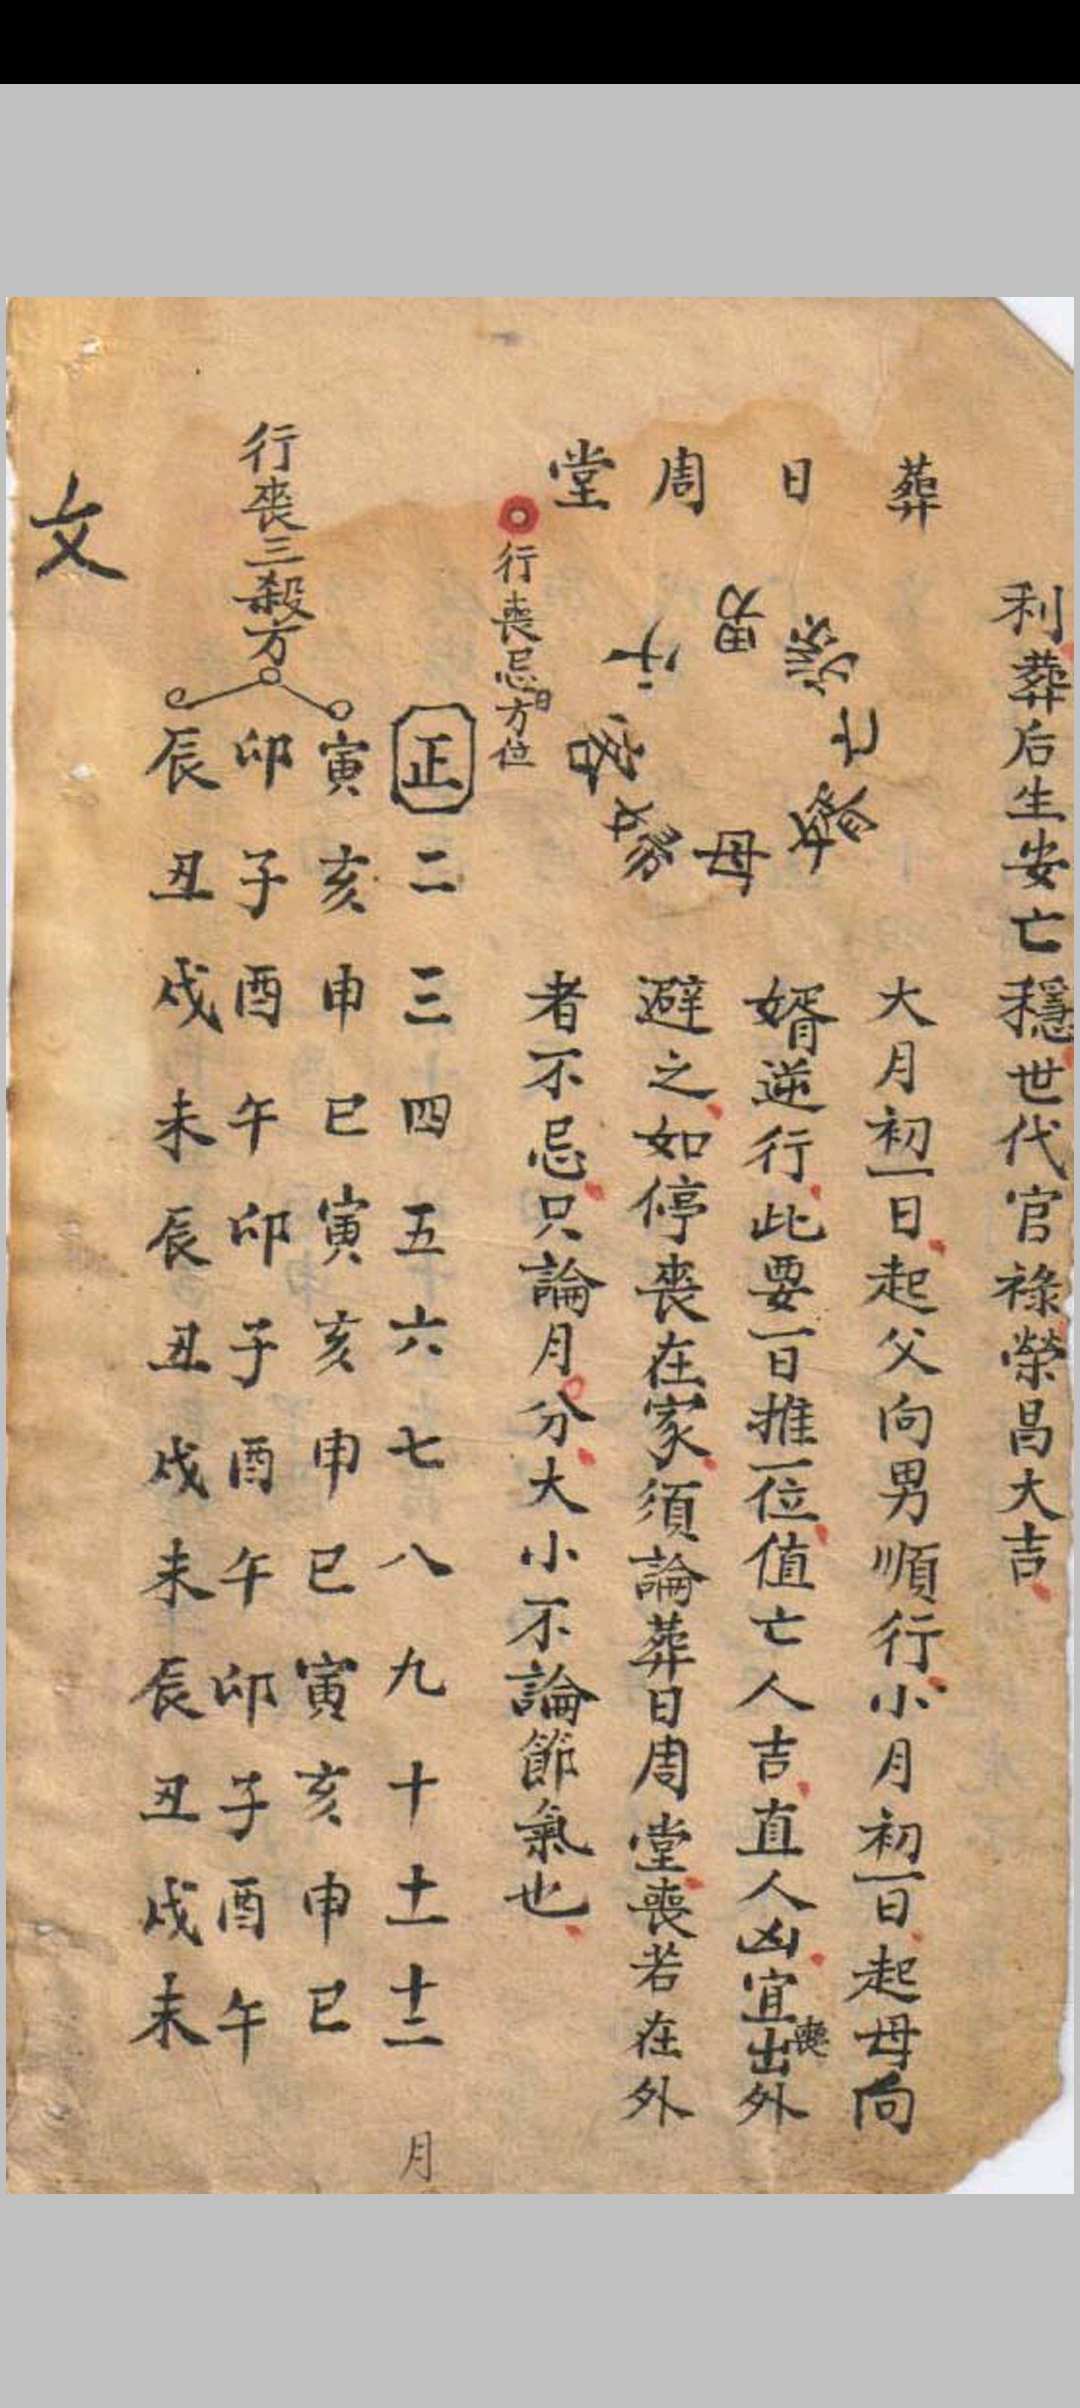 利葬后生安亡穩世代官祿榮昌大吉
葬日周堂
男
孫
亡
婿
母
婦
大月初一日起父向男順行小月初一日起母向
婿逆行此要一日推一位值亡人吉直人凶宜出喪外
避之如停喪在家須論葬日周堂喪若在外
者不忌只論月分大小不論節氣也
行喪忌日方位
正二三四五六七八九十十一十二月
行喪三殺方
寅亥申巳寅亥申巳寅亥申巳
卯子酉午卯子酉午卯子酉午
辰丑戌未辰丑戌未辰丑戌未
文